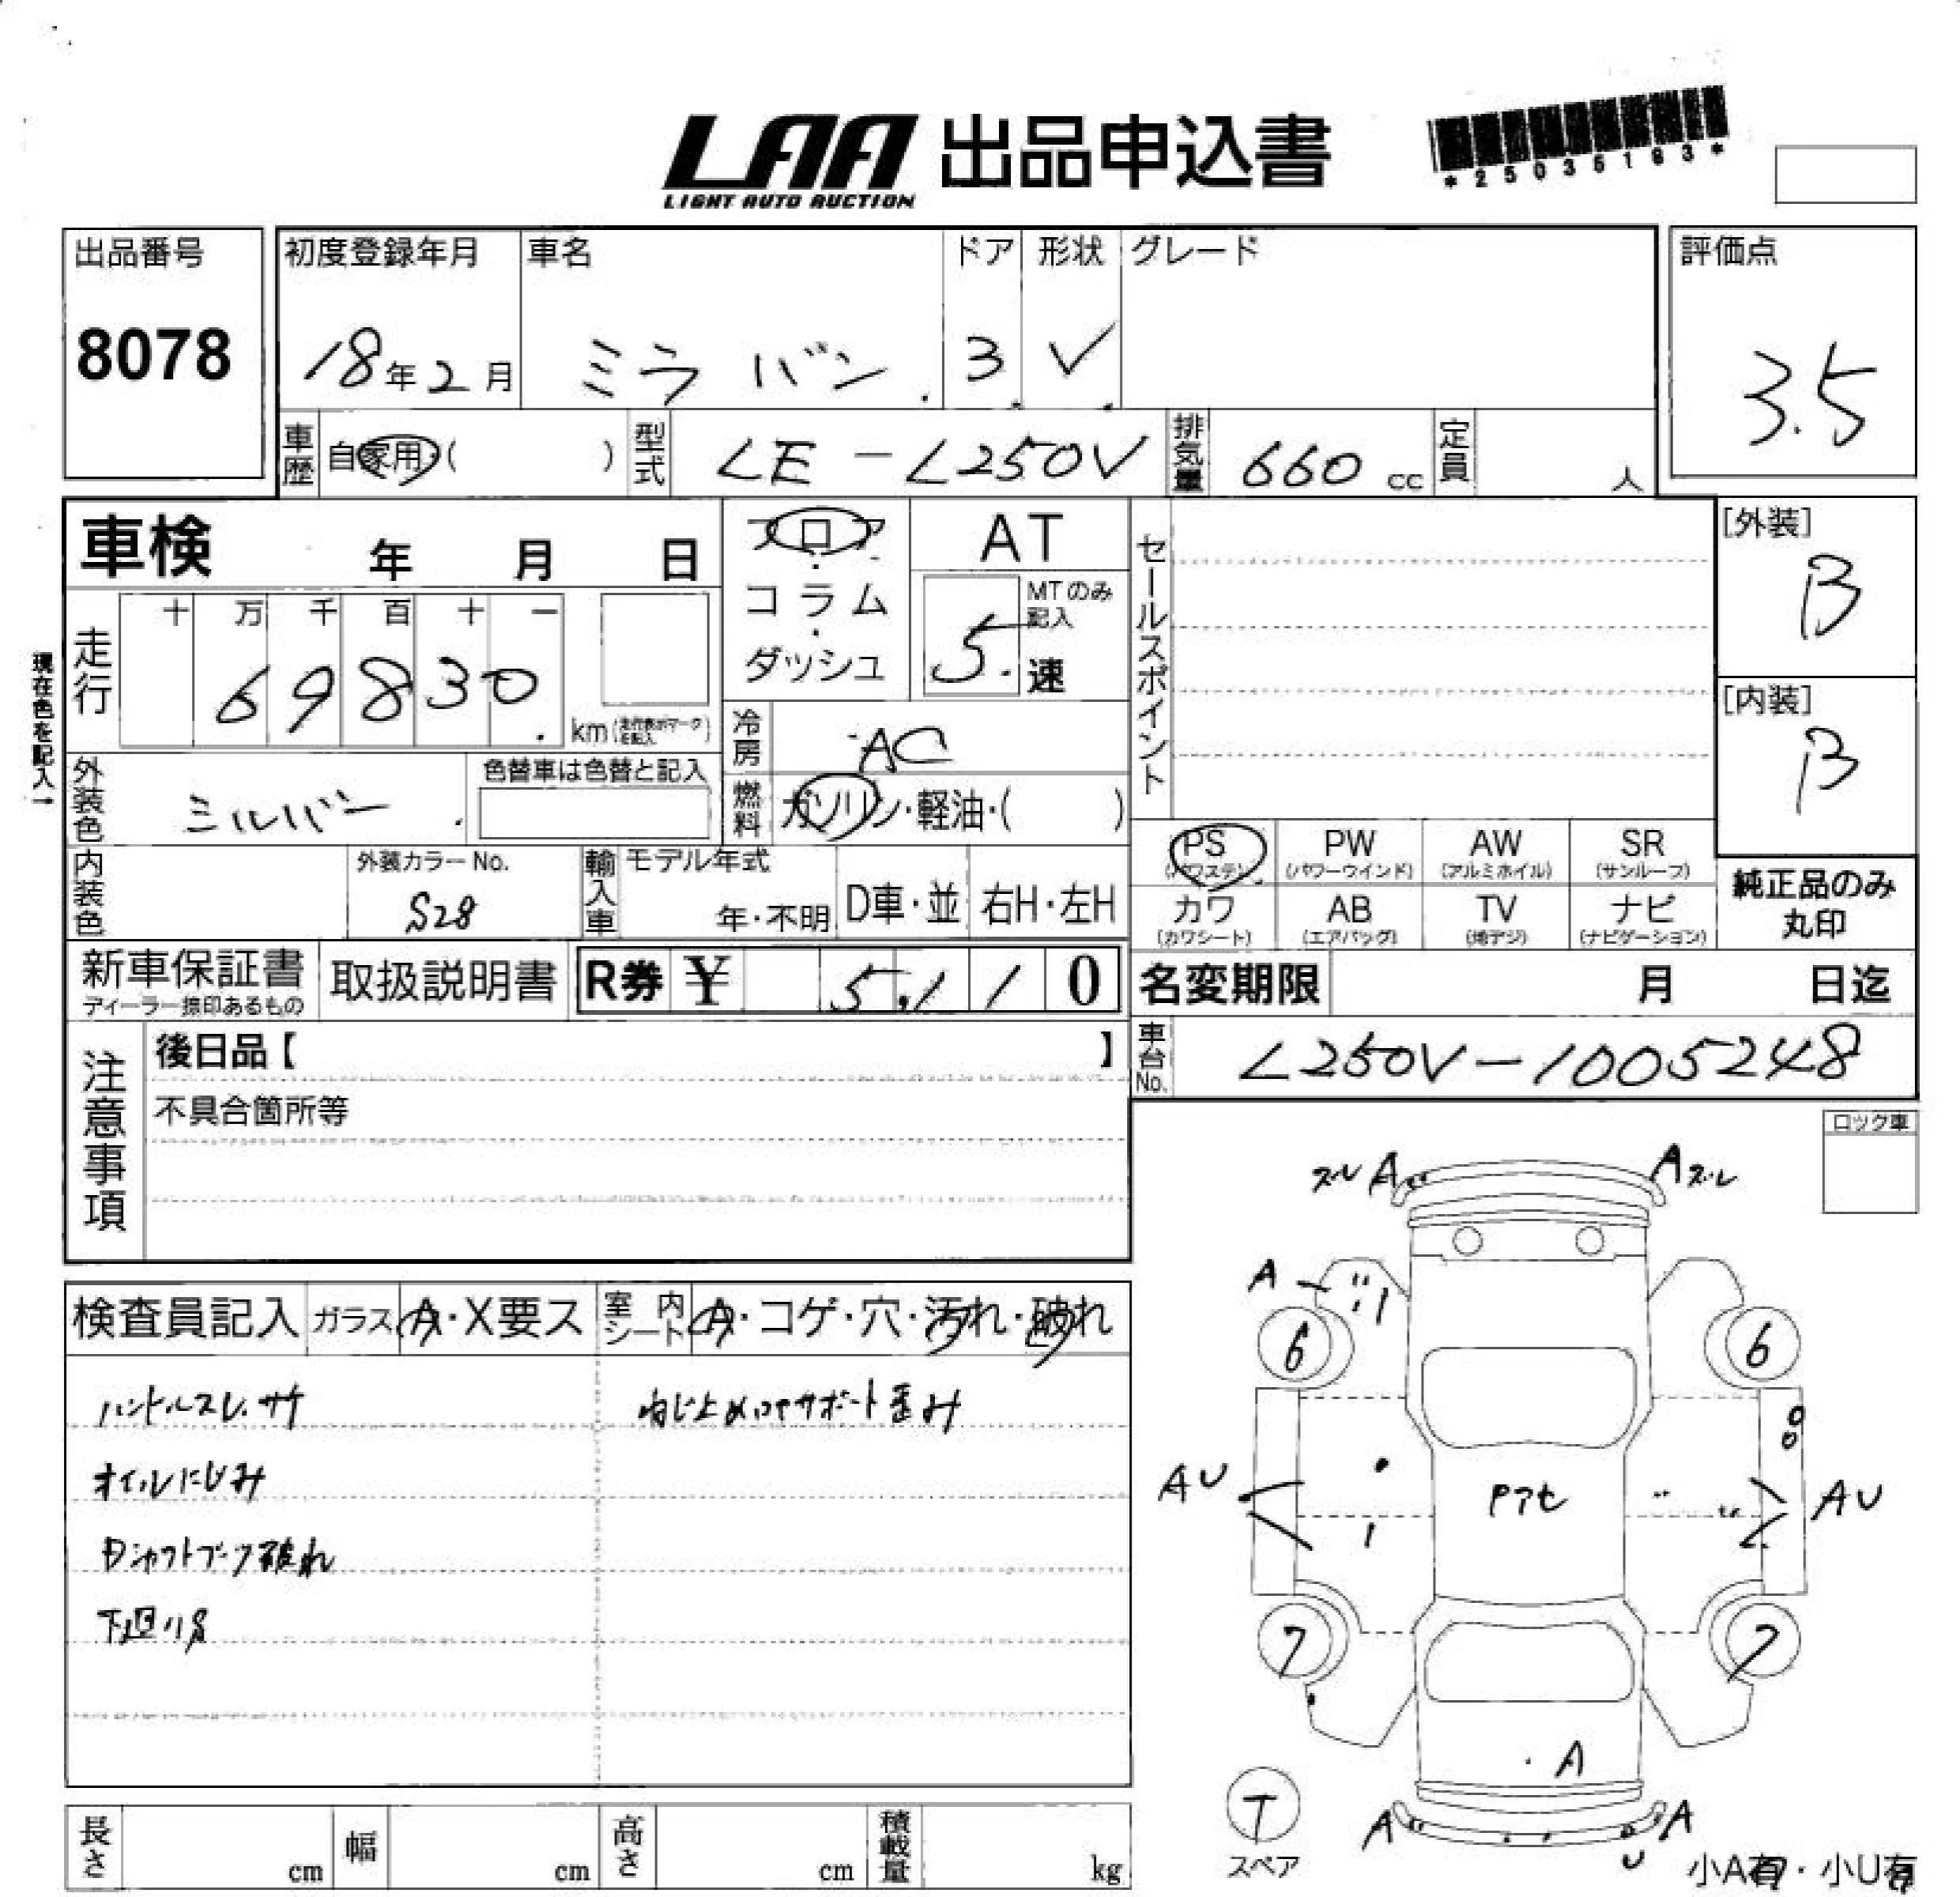 LAA 出品申込書
LIGHT AUTO AUCTION
*25036183*
出品番号
8078
初度登録年月
18年2月
車名
ミラ バン
ドア
3
形状
✓
グレード
評価点
3.5
車歴
自家用・( )
型式
LE-L250V
排気量
660 cc
定員
人
車検 年 月 日
フロア・コラム・ダッシュ
AT
MTのみ記入
5.速
セールスポイント
[外装]
B
[内装]
B
現在色を記入→
走行
十 万 千 百 十 一
6 9 8 3 0
km
冷房
AC
燃料
ガソリン・軽油・( )
外装色
シルバー
色替車は色替と記入
内装色
外装カラーNo.
S28
輸入車
モデル年式
年・不明
D車・並
右H・左H
PS
PW
(パワーウインド)
AW
(アルミホイル)
SR
(サンルーフ)
カワ
(カワシート)
AB
(エアバッグ)
TV
(地デジ)
ナビ
(ナビゲーション)
純正品のみ
丸印
新車保証書
ディーラー捺印あるもの
取扱説明書
R券 ¥ 5,110
名変期限 月 日迄
車台No.
L250V-1005248
注意事項
後日品【 】
不具合箇所等
ロック車
検査員記入
ガラス
A・X要ス
室内シート
A・コゲ・穴・汚れ・破れ
ハンドルスレ.サケ
オイルにじみ
Dシャフトブーツ破れ
下廻りS
ねじ止めコアサポート歪み
スレ A
A スレ
A
6
6
AU
AU
Pアセ
7
7
A
A
A
U
T
スペア
小A有・小U有
長さ cm
幅 cm
高さ cm
積載量 kg